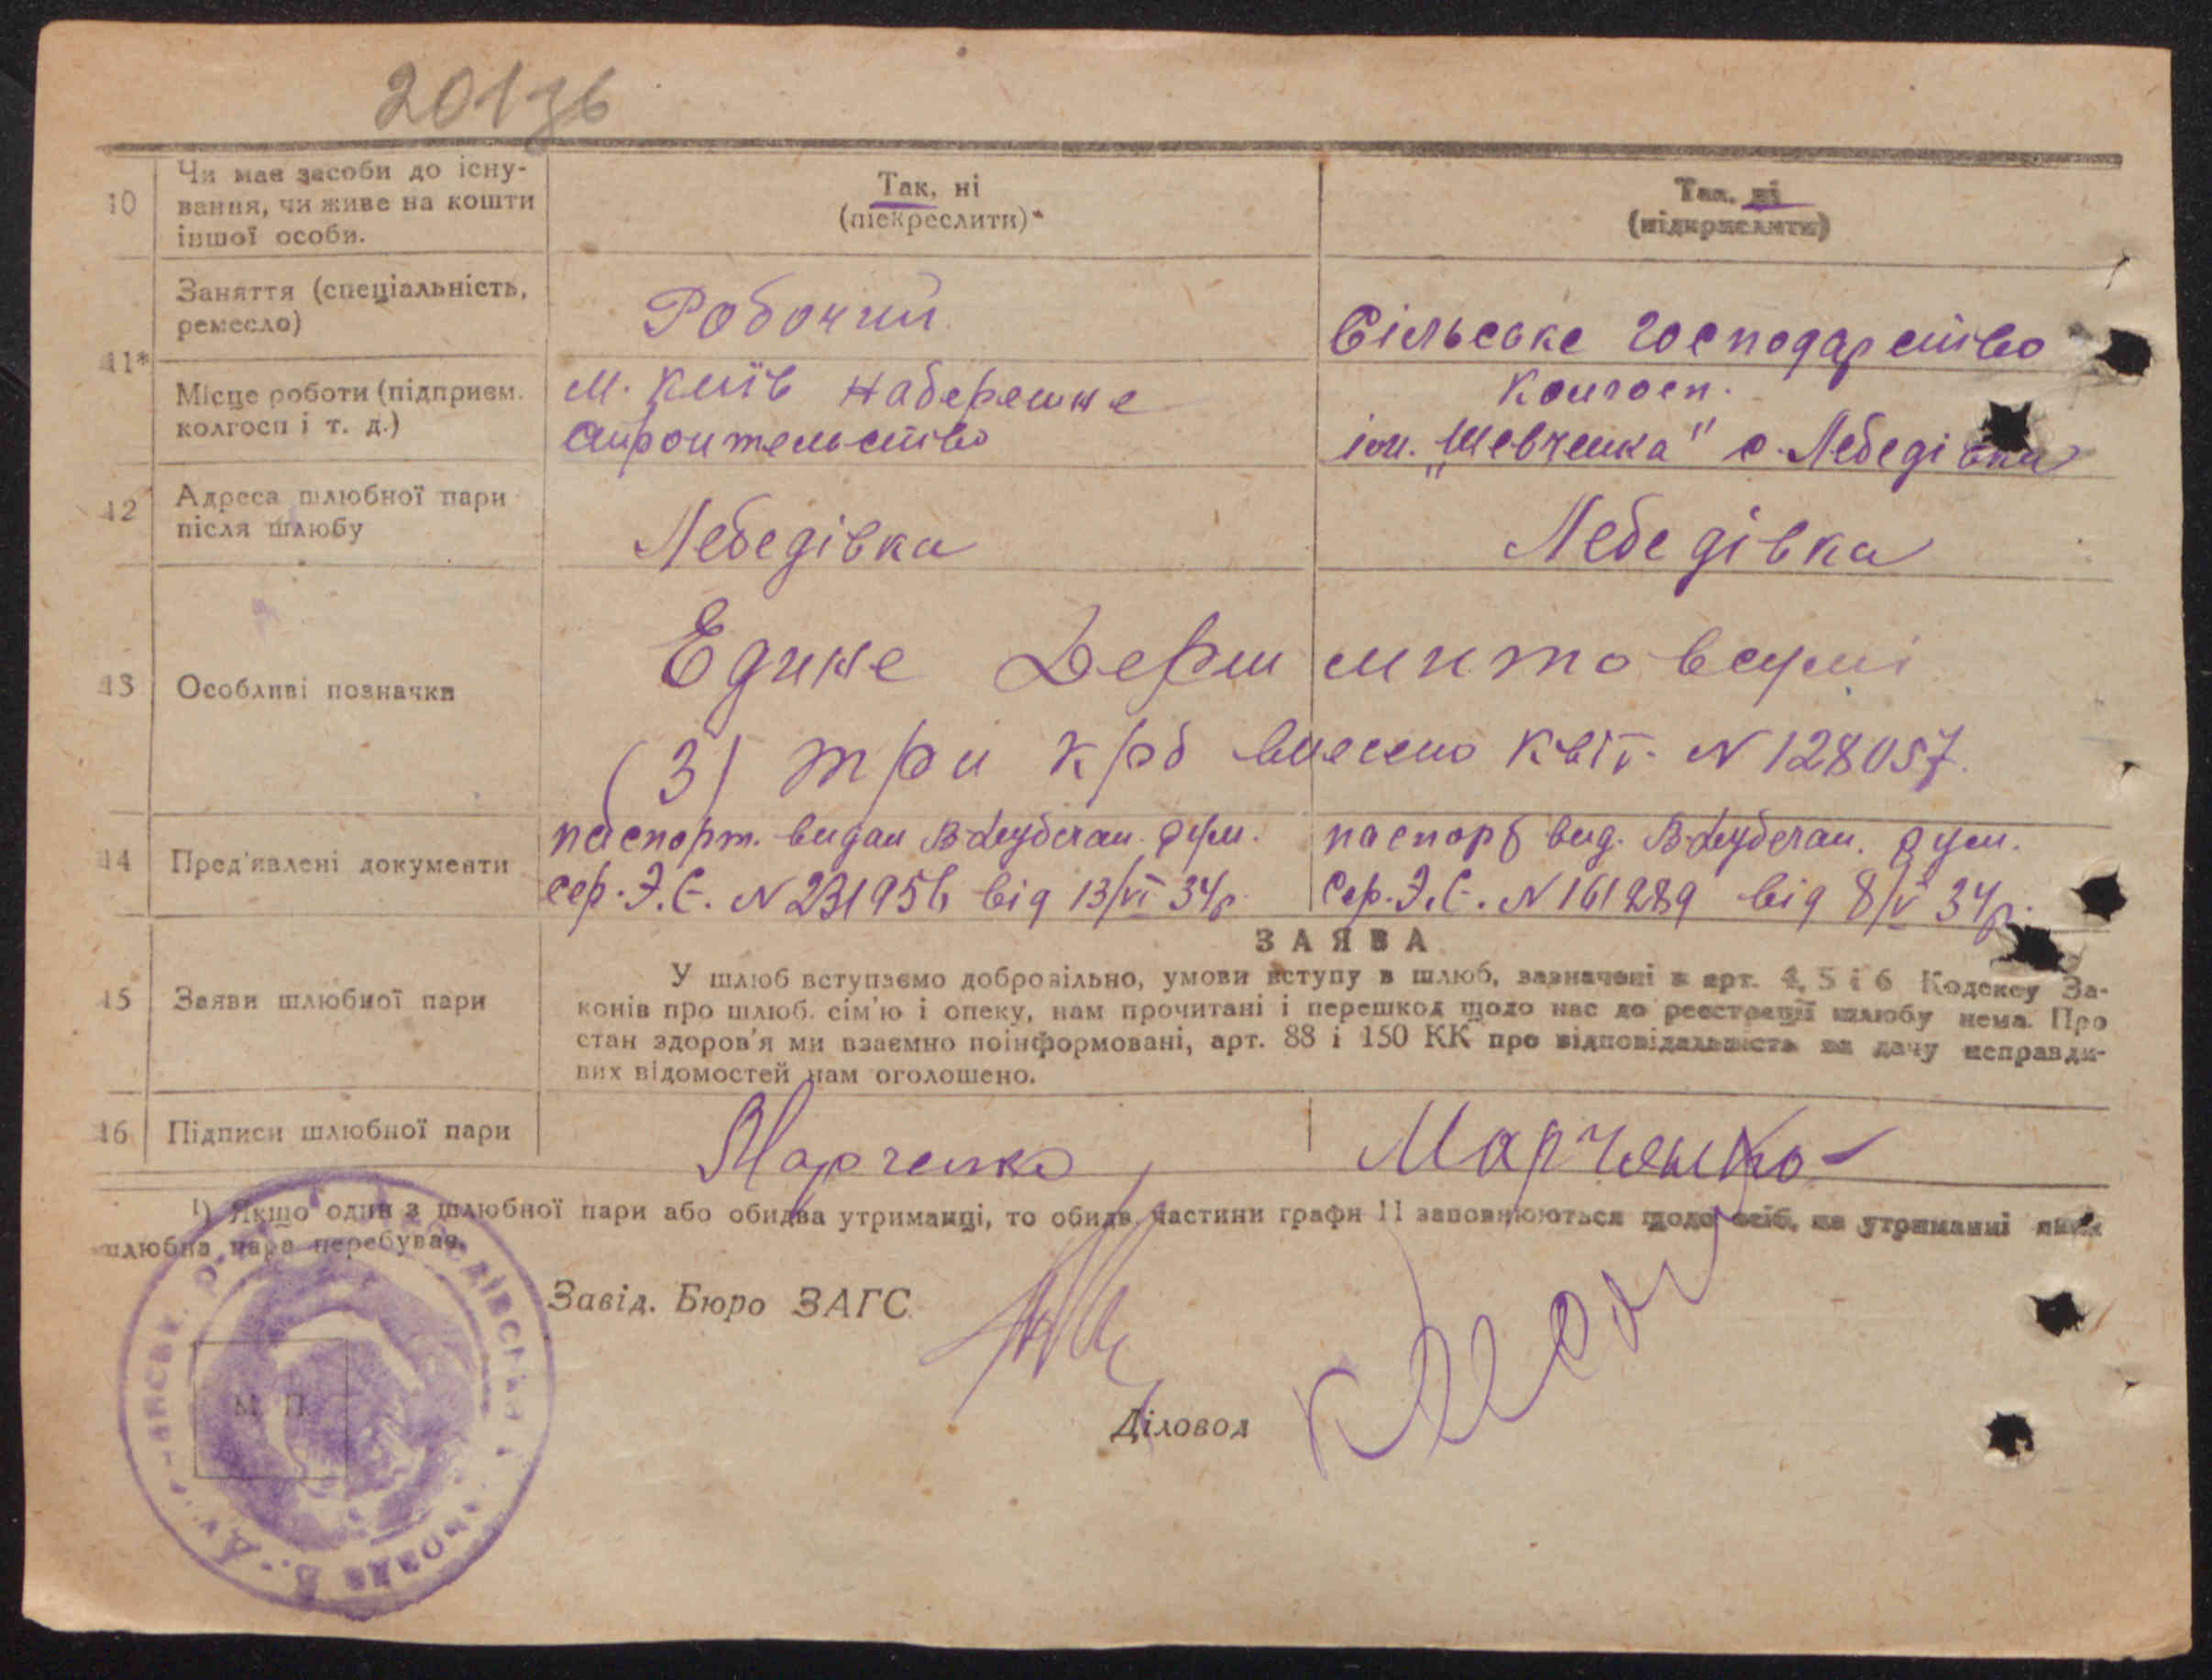 20136
10
Чи має засоби до існу-
вання, чи живе на кошти
іншої особи.
Так, ні
(підкреслити)
Так, ні
(підкреслити)
11*
Заняття (спеціальність,
ремесло)
Робочий
Сільське господарство
Місце роботи (підприєм.
колгосп і т. д.)
м. Київ Набережне
строительство
Колгосп.
ім. „Шевченка" с. Лебедівки
12
Адреса шлюбної пари
після шлюбу
Лебедівка
Лебедівка
13
Особливі позначки
Едине Держ мито в сумі
(3) три крб внесено квіт. N 128057.
14
Пред'явлені документи
паспорт. видан В-Дубечан. рум.
сер. Э.С. N 231956 від 13/VI 34р.
паспорт вид. В-Дубечан. рум.
Сер. Э.С. N 161289 від 8/V 34р.
15
Заяви шлюбної пари
ЗАЯВА
У шлюб вступаємо добровільно, умови вступу в шлюб, зазначені в арт. 4, 5 і 6 Кодексу За-
конів про шлюб, сім'ю і опеку, нам прочитані і перешкод щодо нас до реєстрації шлюбу нема. Про
стан здоров'я ми взаємно поінформовані, арт. 88 і 150 КК про відповідальність за дачу неправди-
вих відомостей нам оголошено.
16
Підписи шлюбної пари
Марченко
Марченко
¹) Якщо один з шлюбної пари або обидва утриманці, то обидв. частини графи 11 заповнюються щодо осіб, на утриманні яких
шлюбна пара перебуває.
Завід. Бюро ЗАГС
Діловод
М. П.